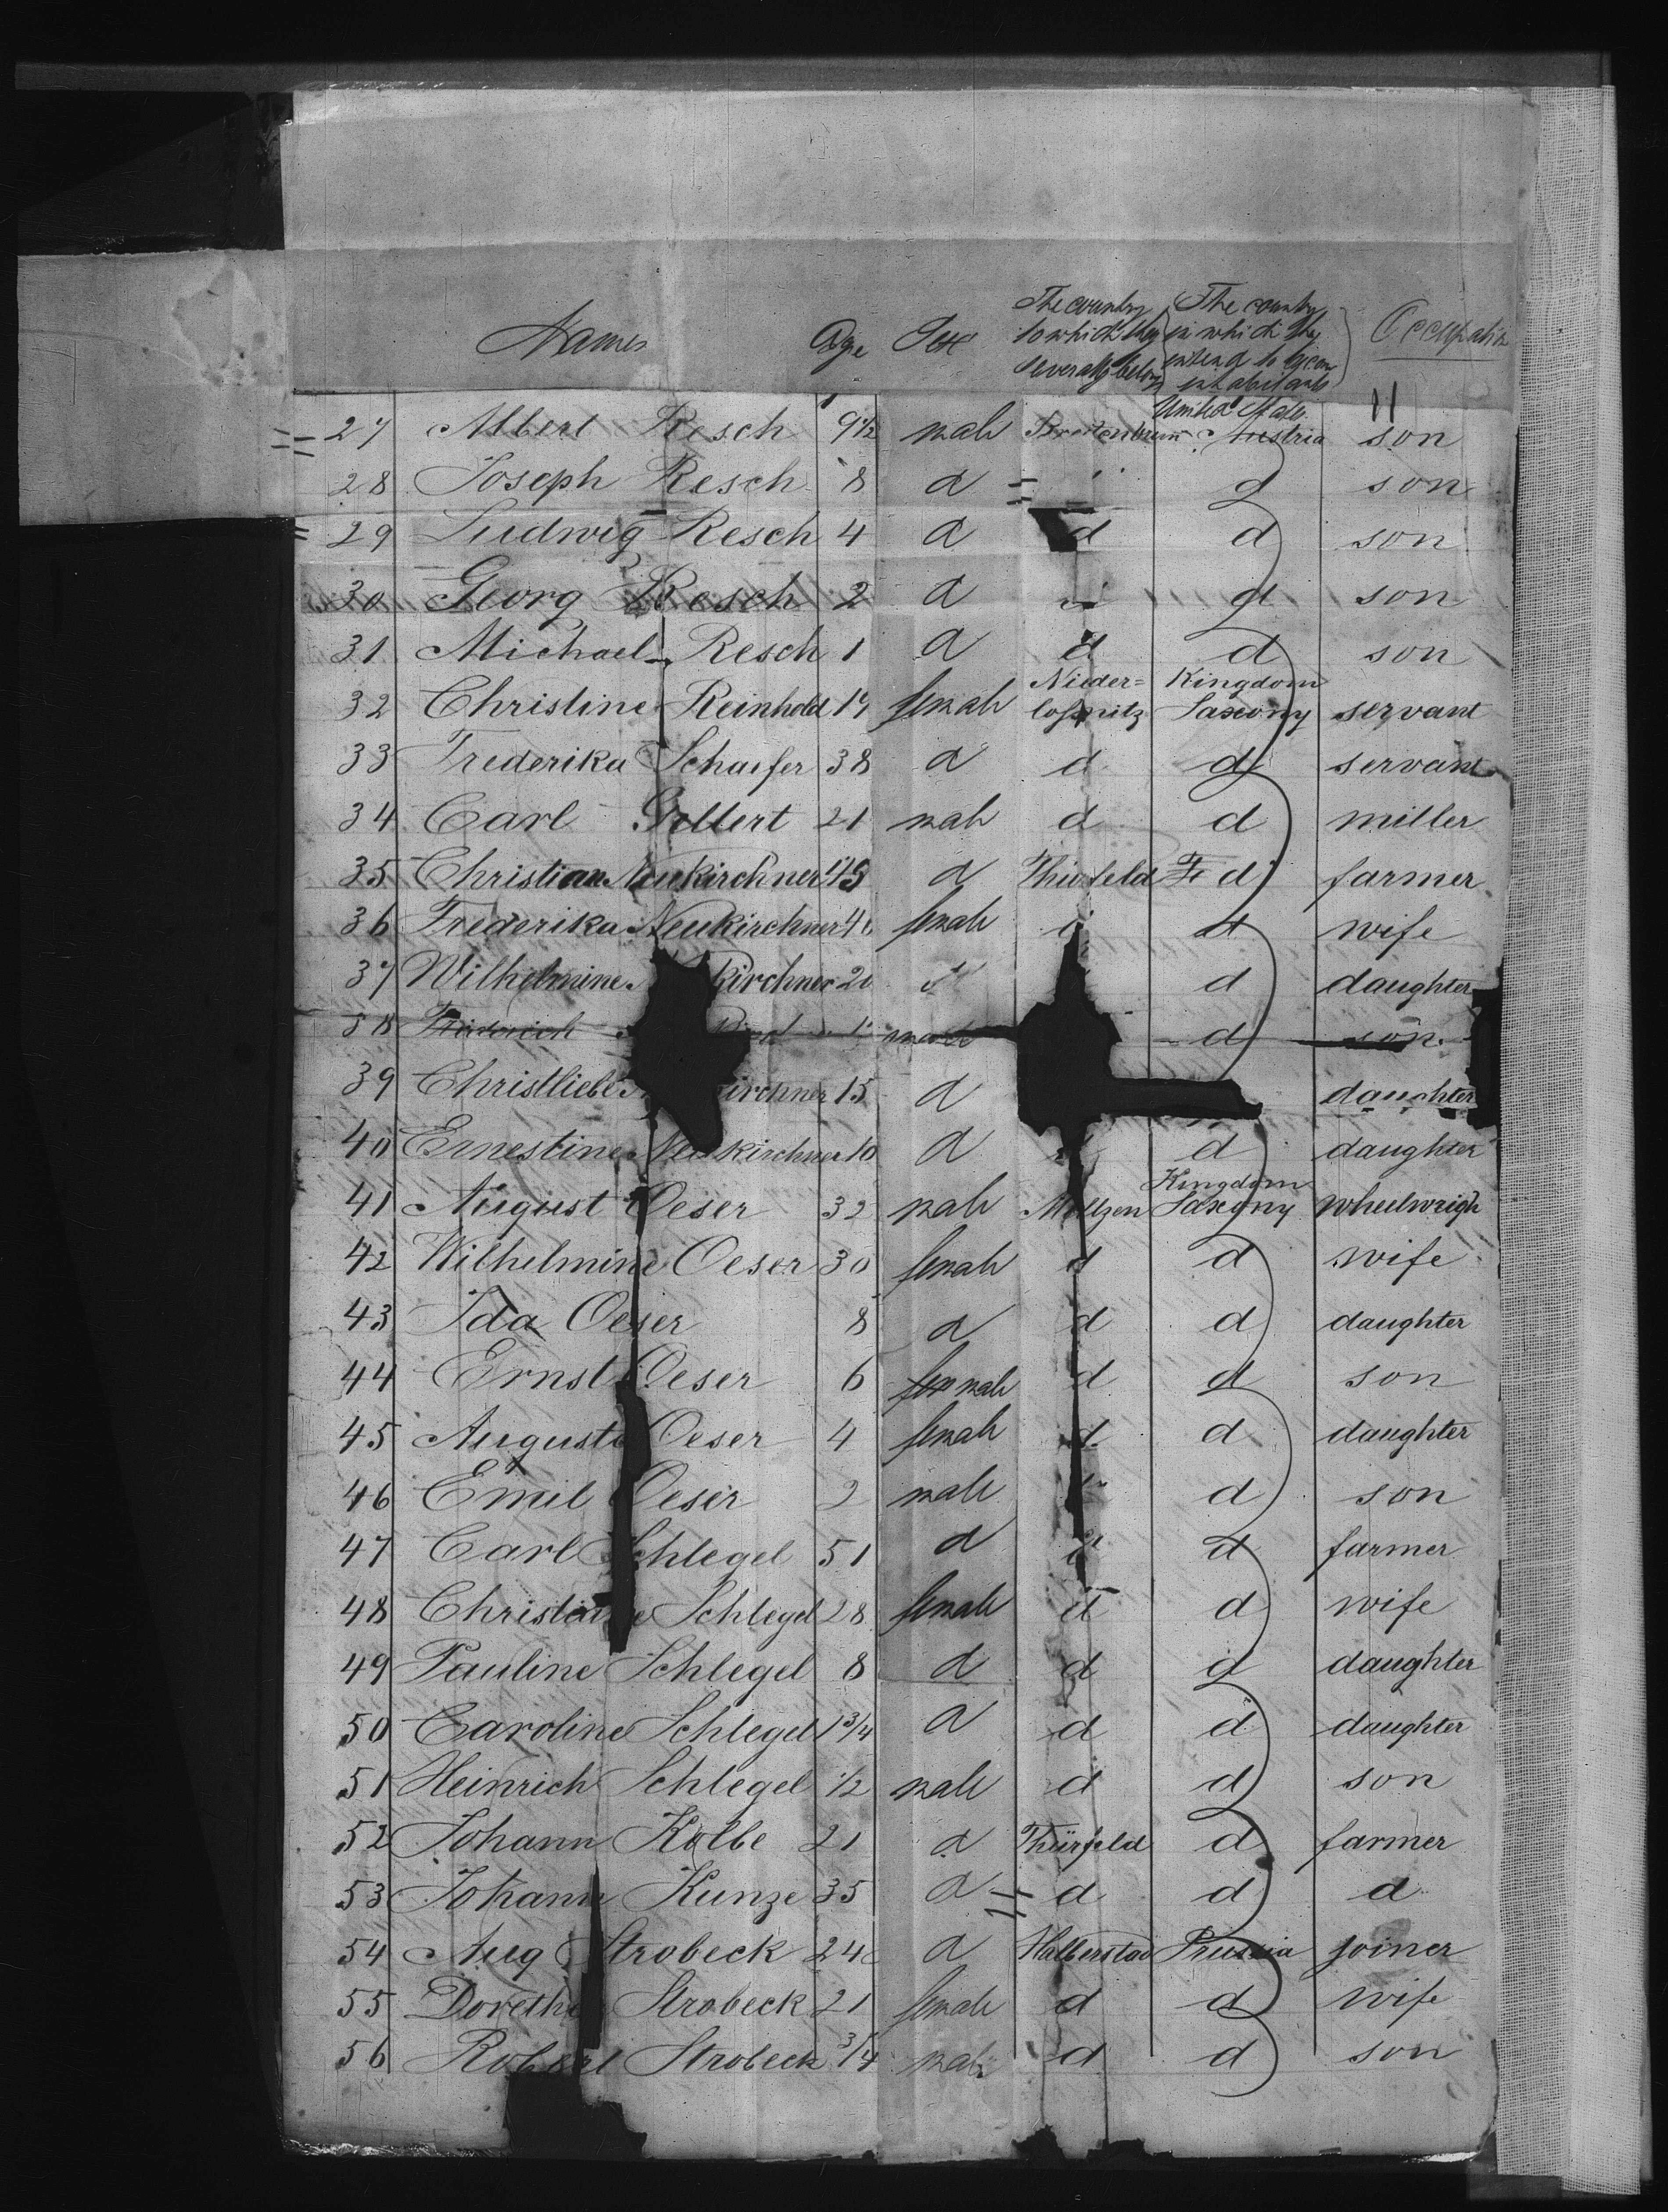 Names Age Sex The country to which they severally belong The country in which they intend to become inhabitants Occupation
United States 11
27 Albert Resch 9 1/2 male Austria son
28 Joseph Resch 8 d d son
29 Ludwig Resch 4 d d d son
30 Georg Resch 2 d d son
31 Michael Resch 1 d d d son
32 Christine Reinhold 19 female Nieder=loßnitz Kingdom Saxony servant
33 Frederika Schaefer 38 d d d servant
34 Carl Gellert 21 male d d miller
35 Christian Neukirchner d d farmer
36 Frederika Neukirchner female d wife
37 Wilhelmine kirchner d daughter
38 d son
39 Christliebe irchner 15 d daughter
40 Ernestine Neukirchner 10 d d daughter
Kingdom
41 August Oeser 32 male Saxony wheelwrigh
42 Wilhelmine Oeser 30 female d d wife
43 Ida Oeser 8 d d d daughter
44 Ernst Oeser 6 male d d son
45 Auguste Oeser 4 female d d daughter
46 Emil Oeser 2 male d son
47 Carl Schlegel 51 d d d farmer
48 Christiane Schlegel 28 female d d wife
49 Pauline Schlegel 8 d d d daughter
50 Caroline Schlegel 1 3/4 d d d daughter
51 Heinrich Schlegel 1/2 male d d son
52 Johann Kolbe 21 d Thürfeld d farmer
53 Johann Kunze 35 d d d d
54 Aug Strobeck 24 d Halberstad Prussia joiner
55 Dorethe Strobeck 21 female d d wife
56 Robert Strobeck 3/4 male d d son